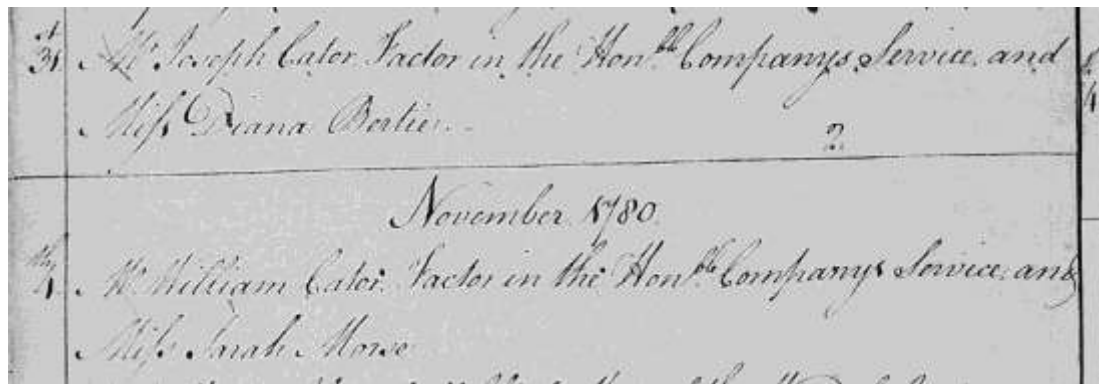 st
31 Mr. Joseph Cator Factor in the Honble. Companys Service, and
Miss Diana Bertie
2
November 1780
th
4 Mr. William Cator Factor in the Honble. Companys Service, and
Miss Sarah Morse